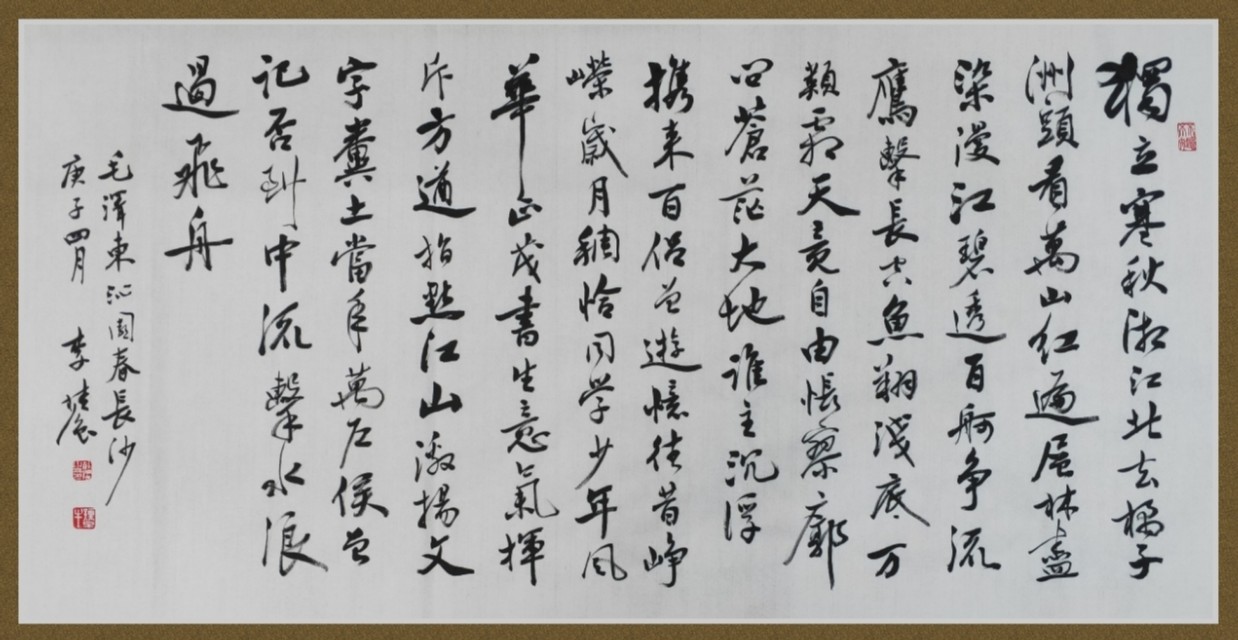 獨立寒秋湘江北去橘子
洲頭看萬山红遍层林盡
染漫江碧透百舸争流
鷹擊長空魚翔淺底万
類霜天竞自由悵寥廓
问蒼茫大地誰主沉浮
携来百侣曾遊憶往昔峥
嶸歲月稠恰同学少年风
華正茂書生意氣揮
斥方遒指點江山激揚文
字糞土當年萬户侯曾
记否到中流擊水浪
遏飛舟
毛澤東沁園春長沙
庚子四月 李